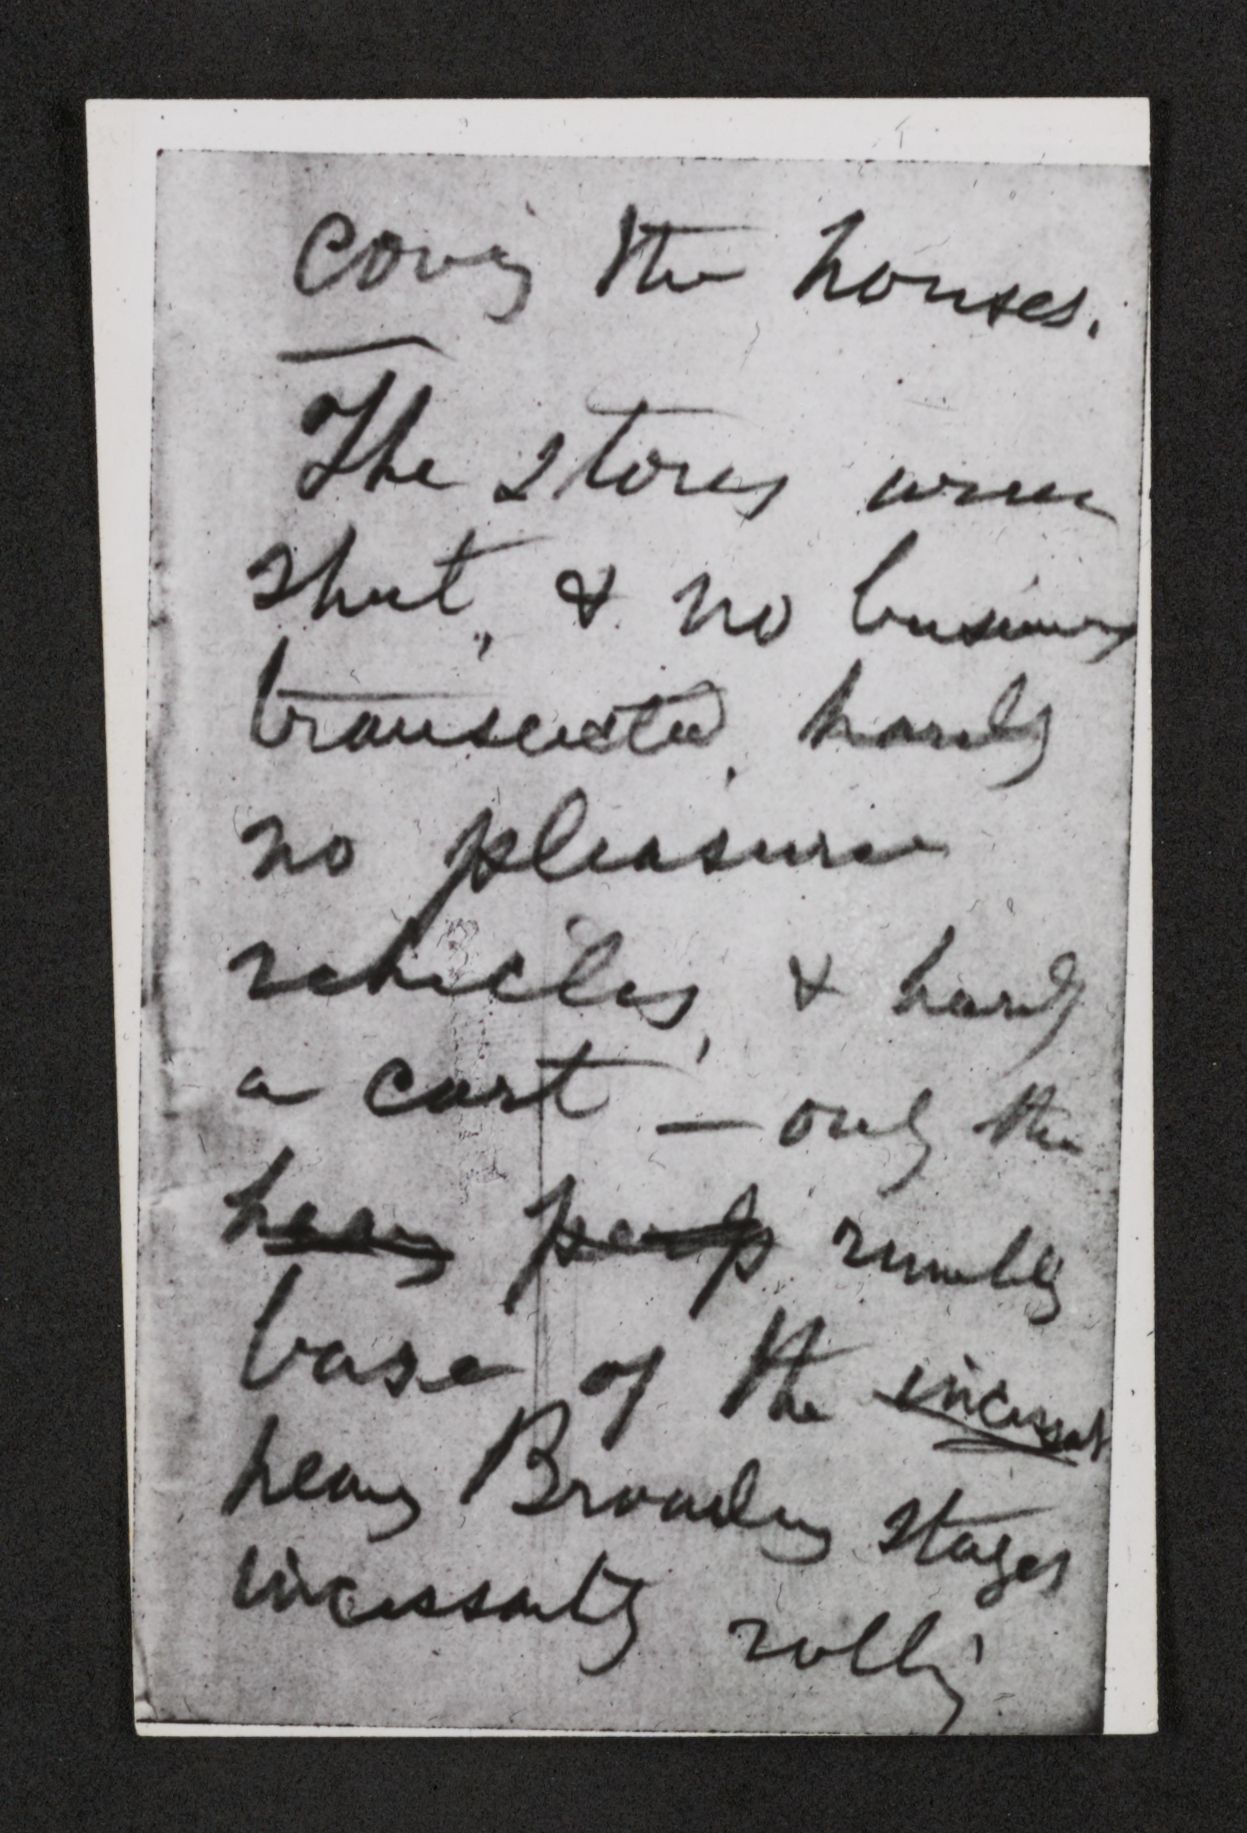 covering the houses.
The stores were
shut, & no business
transacted, hardly
no pleasure
vehicles, & hardly
a cart — only the
heavy rumbling
base of the incessant
heavy Broadway stages
incessantly rolling